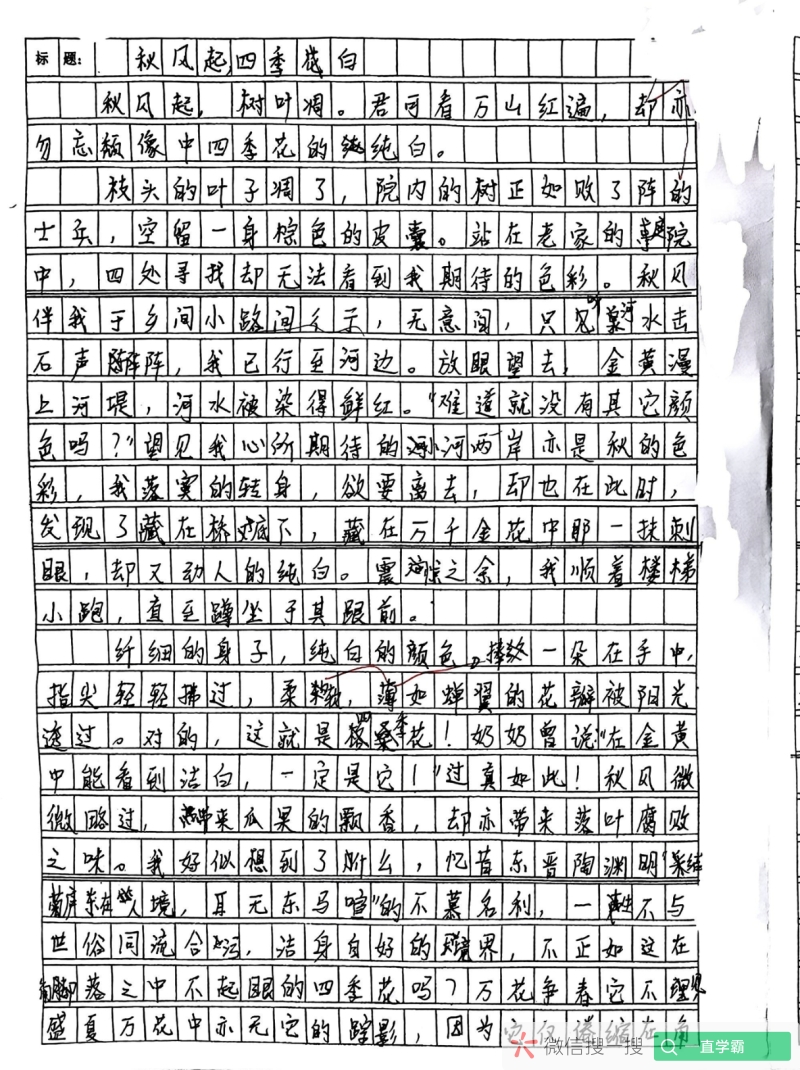 标题： 秋风起,四季花白
秋风起，树叶凋。君可看万山红遍，却亦
勿忘颓像中四季花的纯白。
枝头的叶子凋了，院内的树正如败了阵的
士兵，空留一身棕色的皮囊。站在老家的庭院
中，四处寻找却无法看到我期待的色彩。秋风
伴我于乡间小路间，无意间，只听河水击
石声阵阵，我已行至河边。放眼望去，金黄漫
上河堤，河水被染得鲜红。“难道就没有其它颜
色吗？”望见我心所期待的小河两岸亦是秋的色
彩，我落寞的转身，欲要离去，却也在此时，
发现了藏在桥底下，藏在万千金花中那一抹刺
眼，却又动人的纯白。震惊之余，我顺着楼梯
小跑，直至蹲坐于其跟前。
纤细的身子，纯白的颜色。捧一朵在手中，
指尖轻轻拂过，柔软，薄如蝉翼的花瓣被阳光
透过。对的，这就是四季花！奶奶曾说“在金黄
中能看到洁白，一定是它！”过真如此！秋风微
微略过，带来瓜果的飘香，却亦带来落叶腐败
之味。我好似想到了什么，忆昔东晋陶渊明“结
庐在人境，耳无东马喧”的不慕名利，一生不与
世俗同流合污，洁身自好的境界，不正如这在
角落之中不起眼的四季花吗？万花争春它不见
盛夏万花中亦无它的踪影，因为它仅蜷缩在角
微信搜一搜 一直学霸